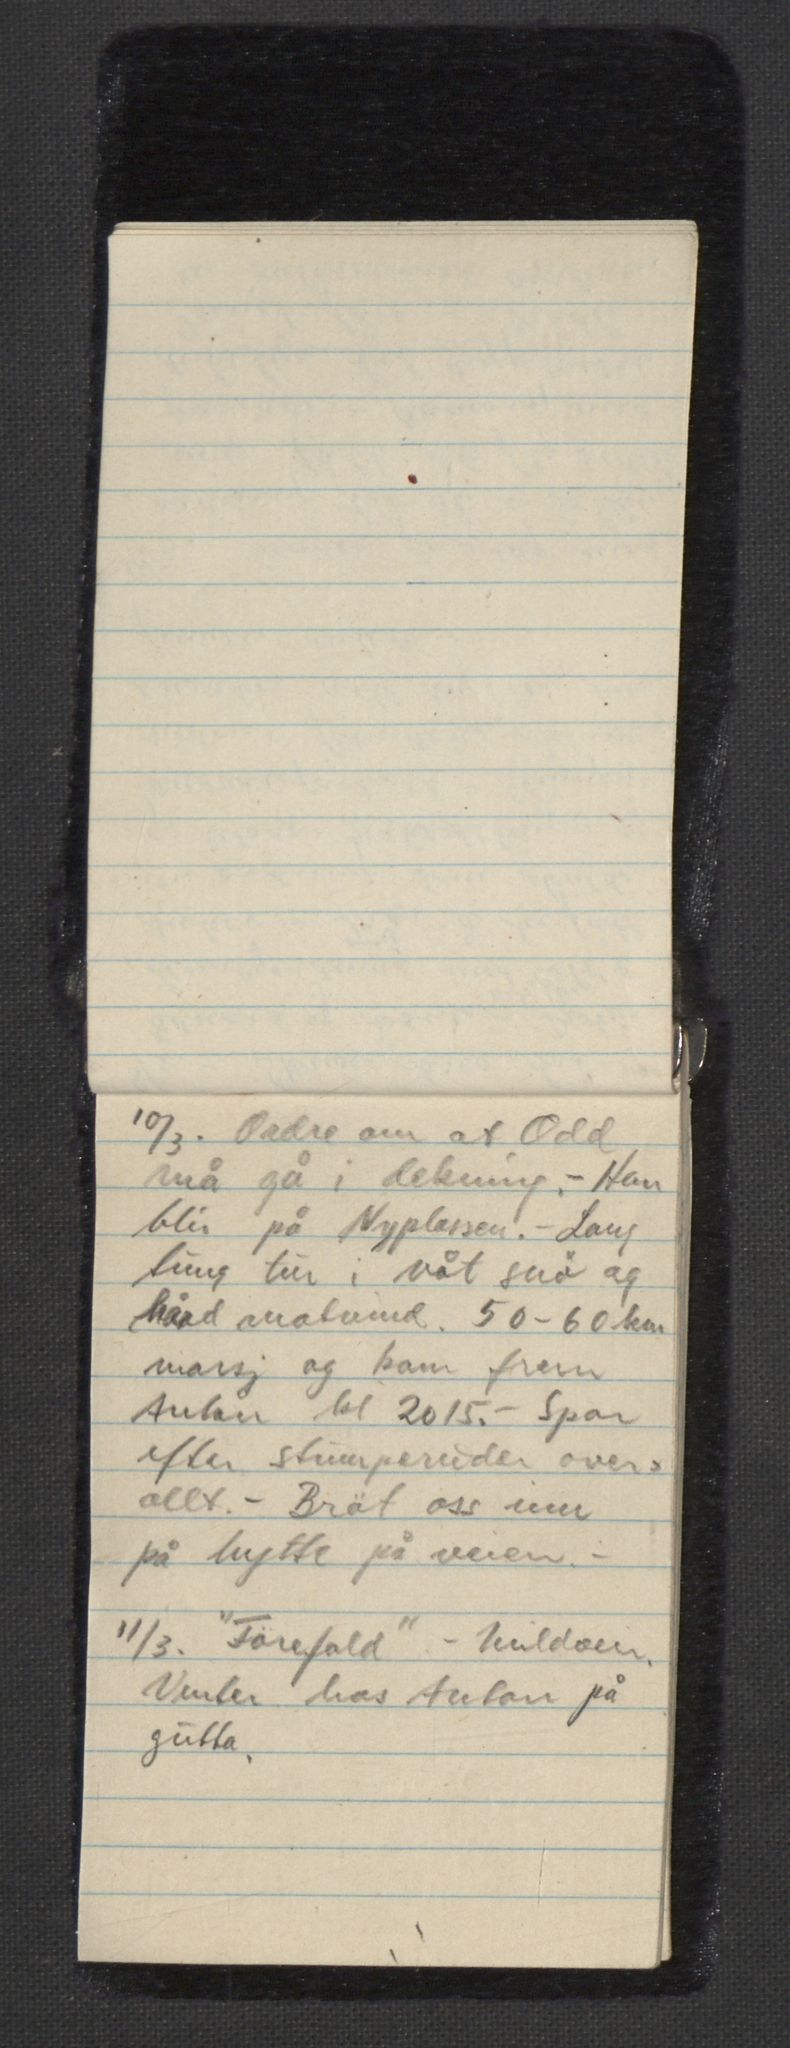 10/3. Ordre om at Odd
må gå i dekning. - Han
blir på Nyplassen. - Lang
tung tur i våt snö og
hård motvind. 50-60 km
marsj og kom frem
Anton kl 2015. - Spor
efter stumperuder over=
allt. - Bröt oss inn
på hytte på veien. -
11/3. "Förefald" - Mildvær.
Venter hos Anton på
gutta.